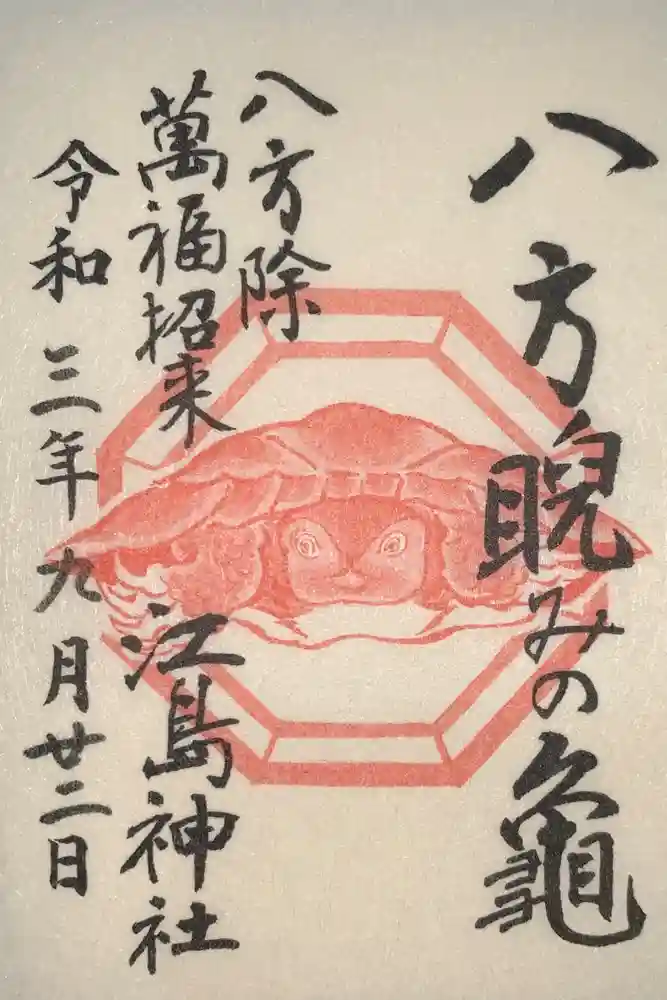 八方睨みの龜
八方除
萬福招来
江島神社
令和三年九月廿二日